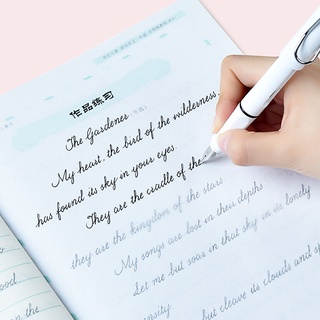 作品练习
The Gardener
My heart, the bird of the wilderness,
has found its sky in your eyes.
They are the cradle of the
they are the kingdom of the stars
My songs are lost in their depths
Let me but soar in that sky in its lonely
but cleave its clouds and